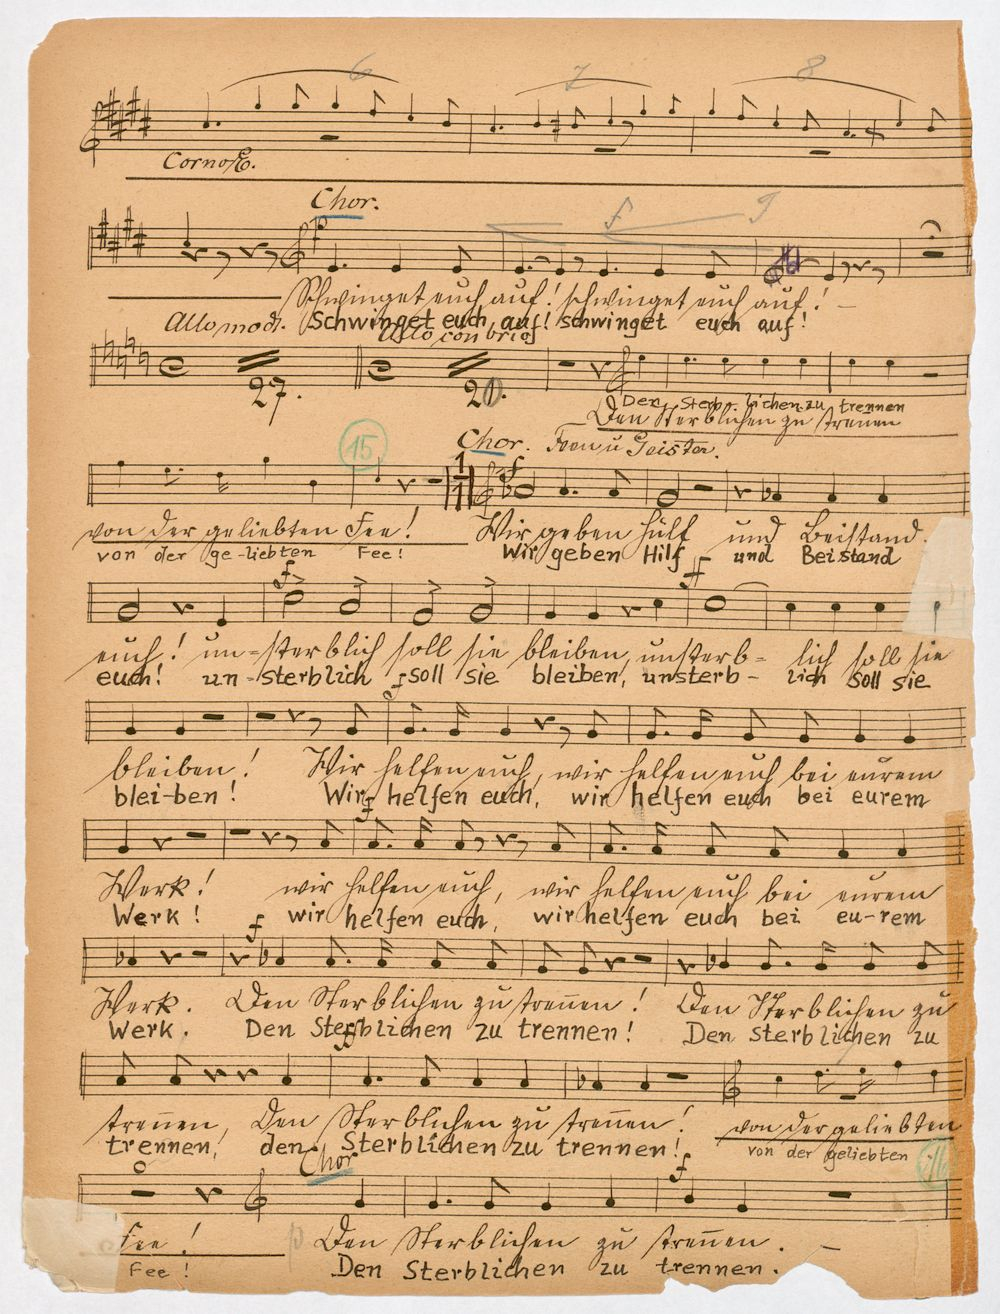 6 7 8
Corno E.
Chor.
p f 9
Schwinget euch auf! schwinget euch auf! –
Schwinget euch auf! schwinget euch auf!
Allo mod. Allo con brio
27. 20.
Den Sterb- lichen zu trennen
Den Sterblichen zu trennen
15
Chor. Feen u Geister.
1 1
f
von der geliebten Fee! Wir geben hülf und Beistand.
von der ge-liebten Fee! Wir geben Hilf und Beistand
f ff
euch! un-sterblich soll sie bleiben, unsterb- lich soll sie
euch! un-sterblich soll sie bleiben, unsterb- lich soll sie
f
bleiben! Wir helfen euch, wir helfen euch bei eurem
blei-ben! Wir helfen euch, wir helfen euch bei eurem
f
Werk! wir helfen euch, wir helfen euch bei eurem
Werk! wir helfen euch, wir helfen euch bei eu-rem
f
Werk. Den Sterblichen zu trennen! Den Sterblichen zu
Werk. Den Sterblichen zu trennen! Den Sterblichen zu
ff
trennen, Den Sterblichen zu trennen! von der geliebten
trennen, den Sterblichen zu trennen! von der geliebten
16
Chor
f
Fee! p Den Sterblichen zu trennen. –
Fee! Den Sterblichen zu trennen.